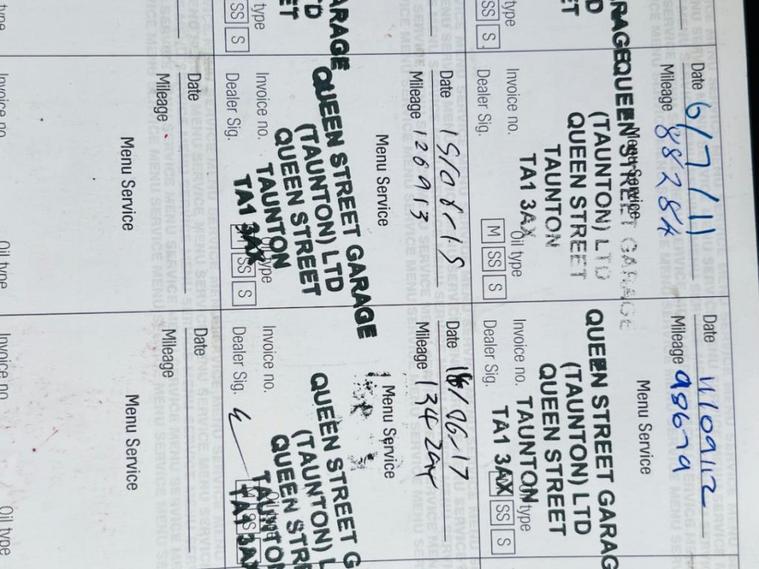 Date 6/7/11
Mileage 88284
Menu Service
QUEEN STREET GARAGE
(TAUNTON) LTD
QUEEN STREET
TAUNTON
TA1 3AX
Invoice no.
Oil type
Dealer Sig.
M SS S
Date 11/09/12
Mileage 98679
Menu Service
QUEEN STREET GARAG
(TAUNTON) LTD
QUEEN STREET
Invoice no. TAUNTON type
TA1 3AX
Dealer Sig.
SS S
Date 15/08/15
Mileage 126913
Menu Service
QUEEN STREET GARAGE
(TAUNTON) LTD
QUEEN STREET
Invoice no. TAUNTON type
TA1 3AX
Dealer Sig.
SS S
Date 16/06/17
Mileage
Menu Service
QUEEN STREET G
(TAUNTON) L
QUEEN STRE
Invoice no. TAUNTON
TA1 3AX
Dealer Sig.
Date
Mileage
Menu Service
Invoice no.
Oil type
Date
Mileage
Menu Service
Invoice no
Oil type